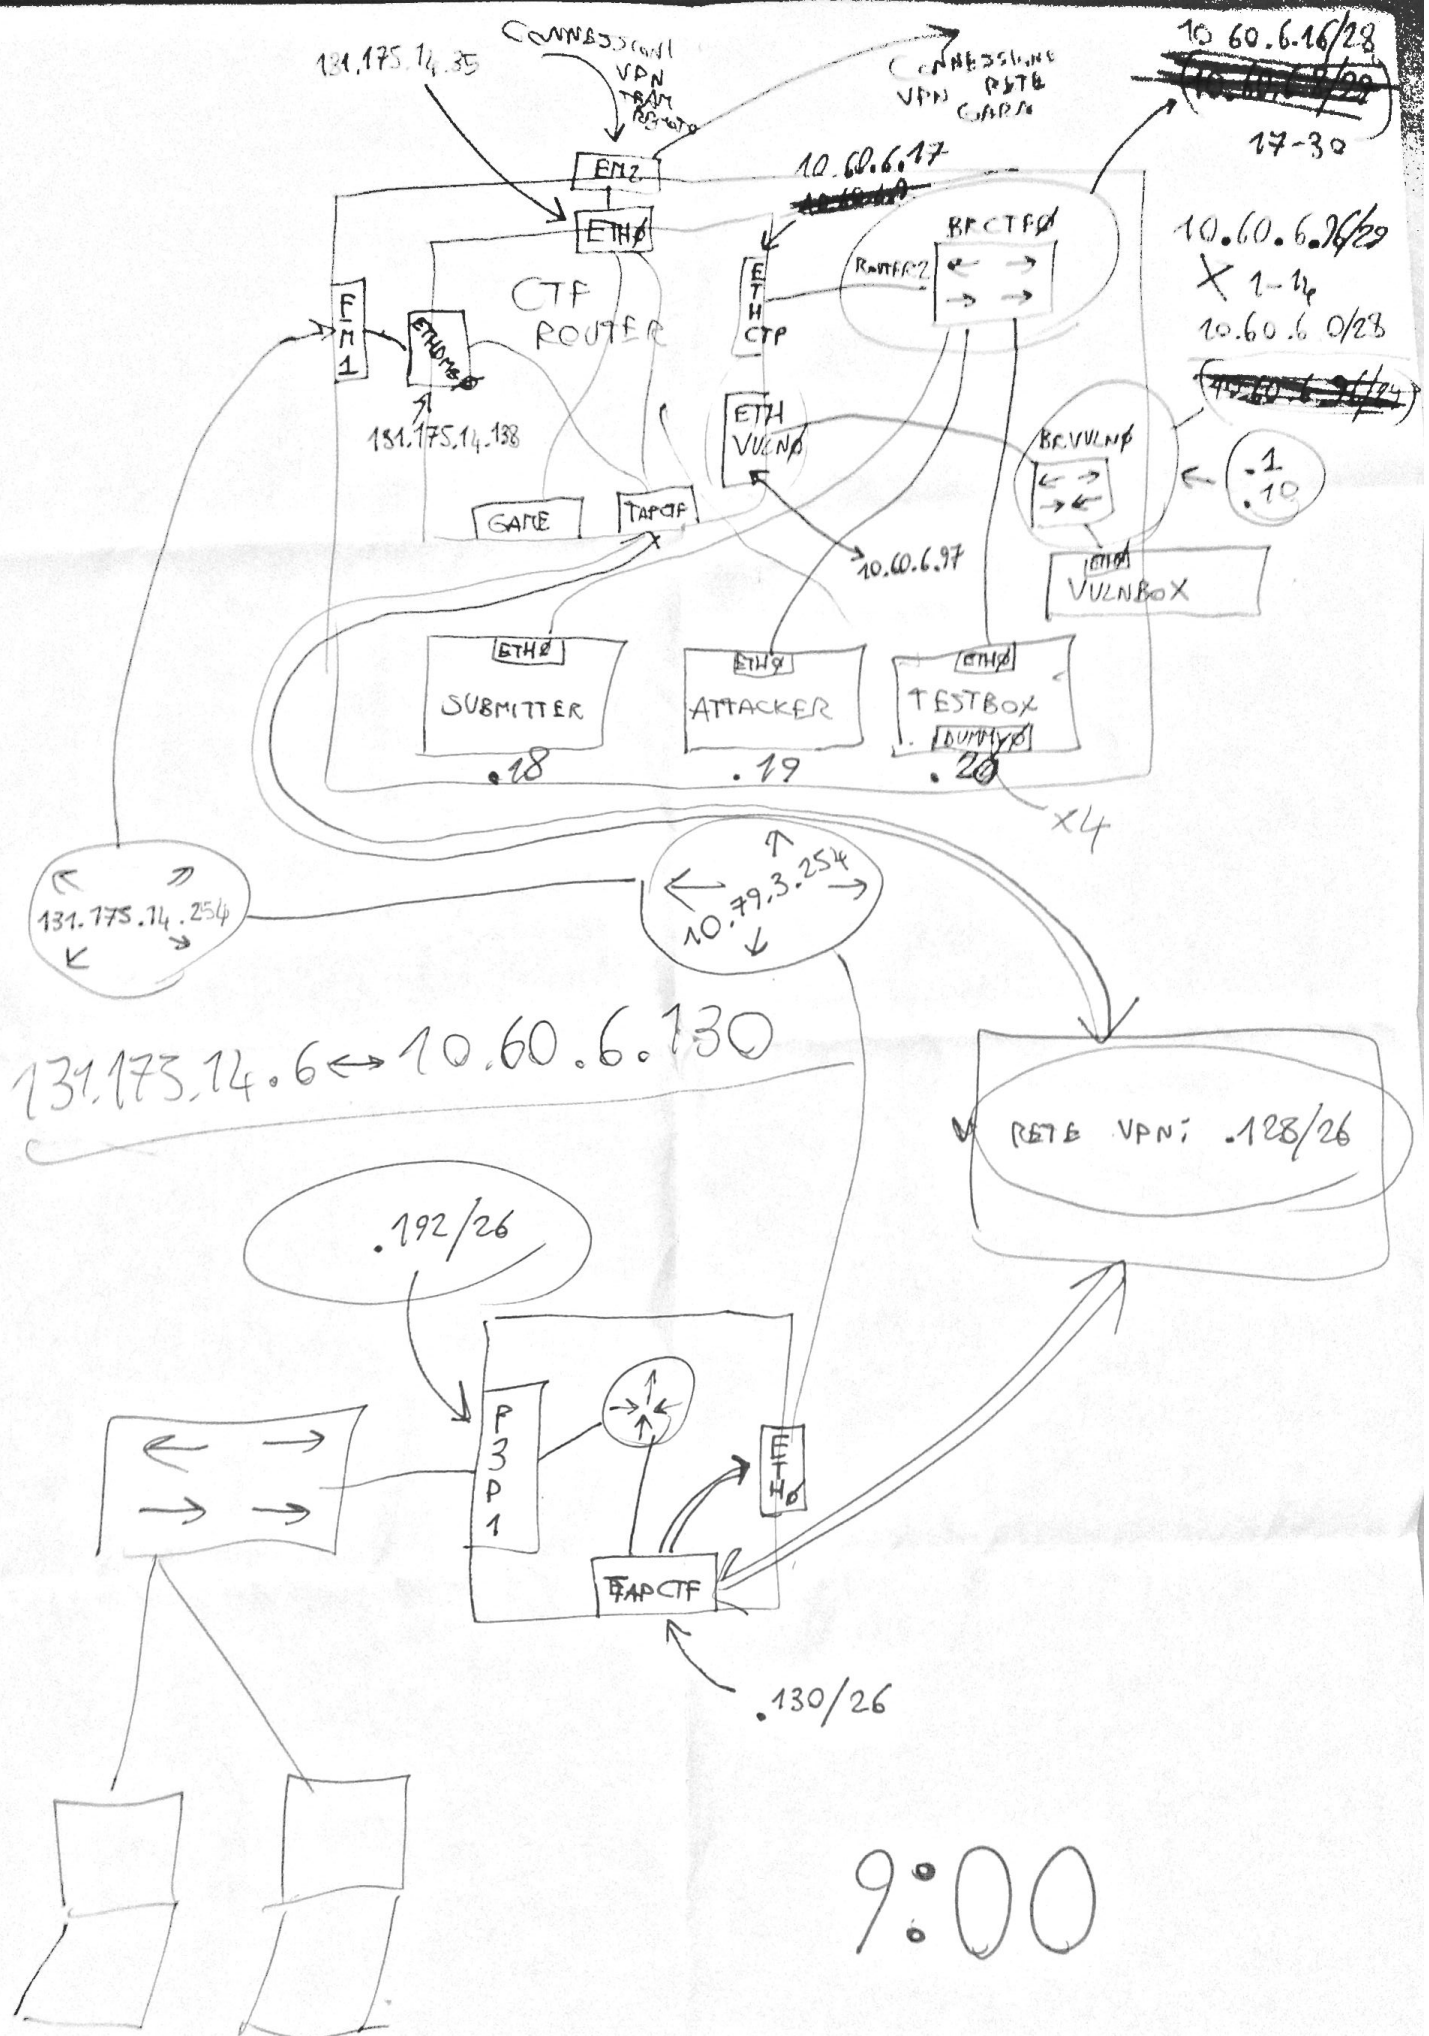 131.175.14.35
CONNESSIONI
VPN
TEAM
REMOTO
CONNESSIONE
VPN RETE
GARA
10.60.6.16/28
17-30
EM2
ETHØ
10.60.6.17
BRCTFØ
ROUTER2
ETH
CTF
CTF
ROUTER
EM1
ETHDMZØ
131.175.14.138
10.60.6.96/29
X 1-14
10.60.6.0/28
ETH
VULNØ
BRVULNØ
.1
.10
GAME
TAPCTF
10.60.6.97
ETHØ
VULNBOX
ETHØ
SUBMITTER
.18
ETHØ
ATTACKER
.19
ETHØ
TESTBOX
DUMMYØ
.20
x4
131.175.14.254
10.79.3.254
131.175.14.6↔10.60.6.130
RETE VPN: .128/26
.192/26
P3P1
ETHØ
TAPCTF
.130/26
9:00